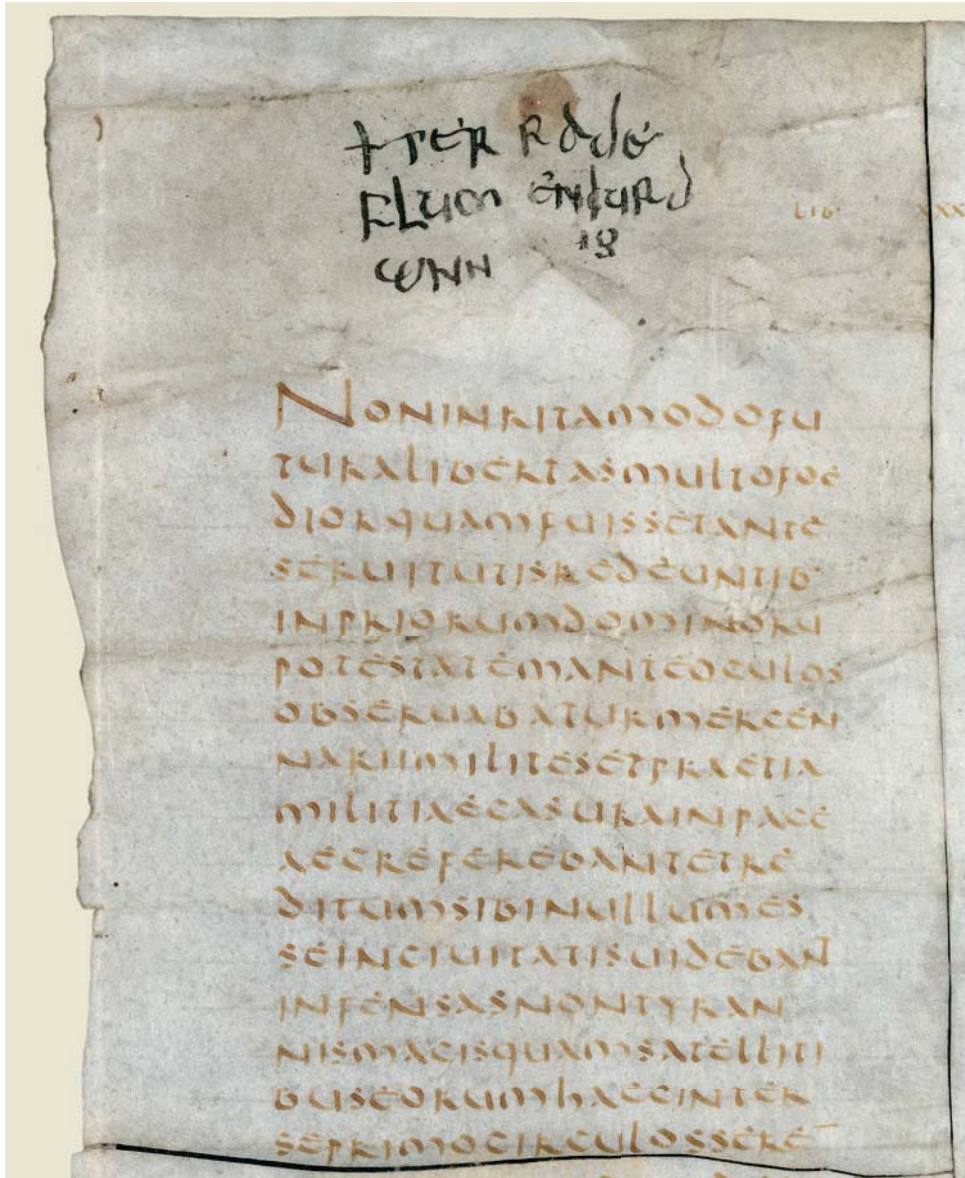 LIB· XXX
NONINRITAMODOFU
TURALIBERTASMULTOFOE
DIORQUAMFUISSETANTE
SERUITUTISREDEUNTIB·
INPRIORUMDOMINORU
POTESTATEMANTEOCULOS
OBSERUABATURMERCEN
NARIIMILITESETPRAETIA
MILITIAECASURAINPACE
AECREFEREBANTETRE
DITUMSIBINULLUMES
SEINCIUITATISUIDEBANT
INFENSASNONTYRAN
NISMAGISQUAMSATELLITI
BUSEORUMHAECINTER
SEPRIMOCIRCULOSSERE‾